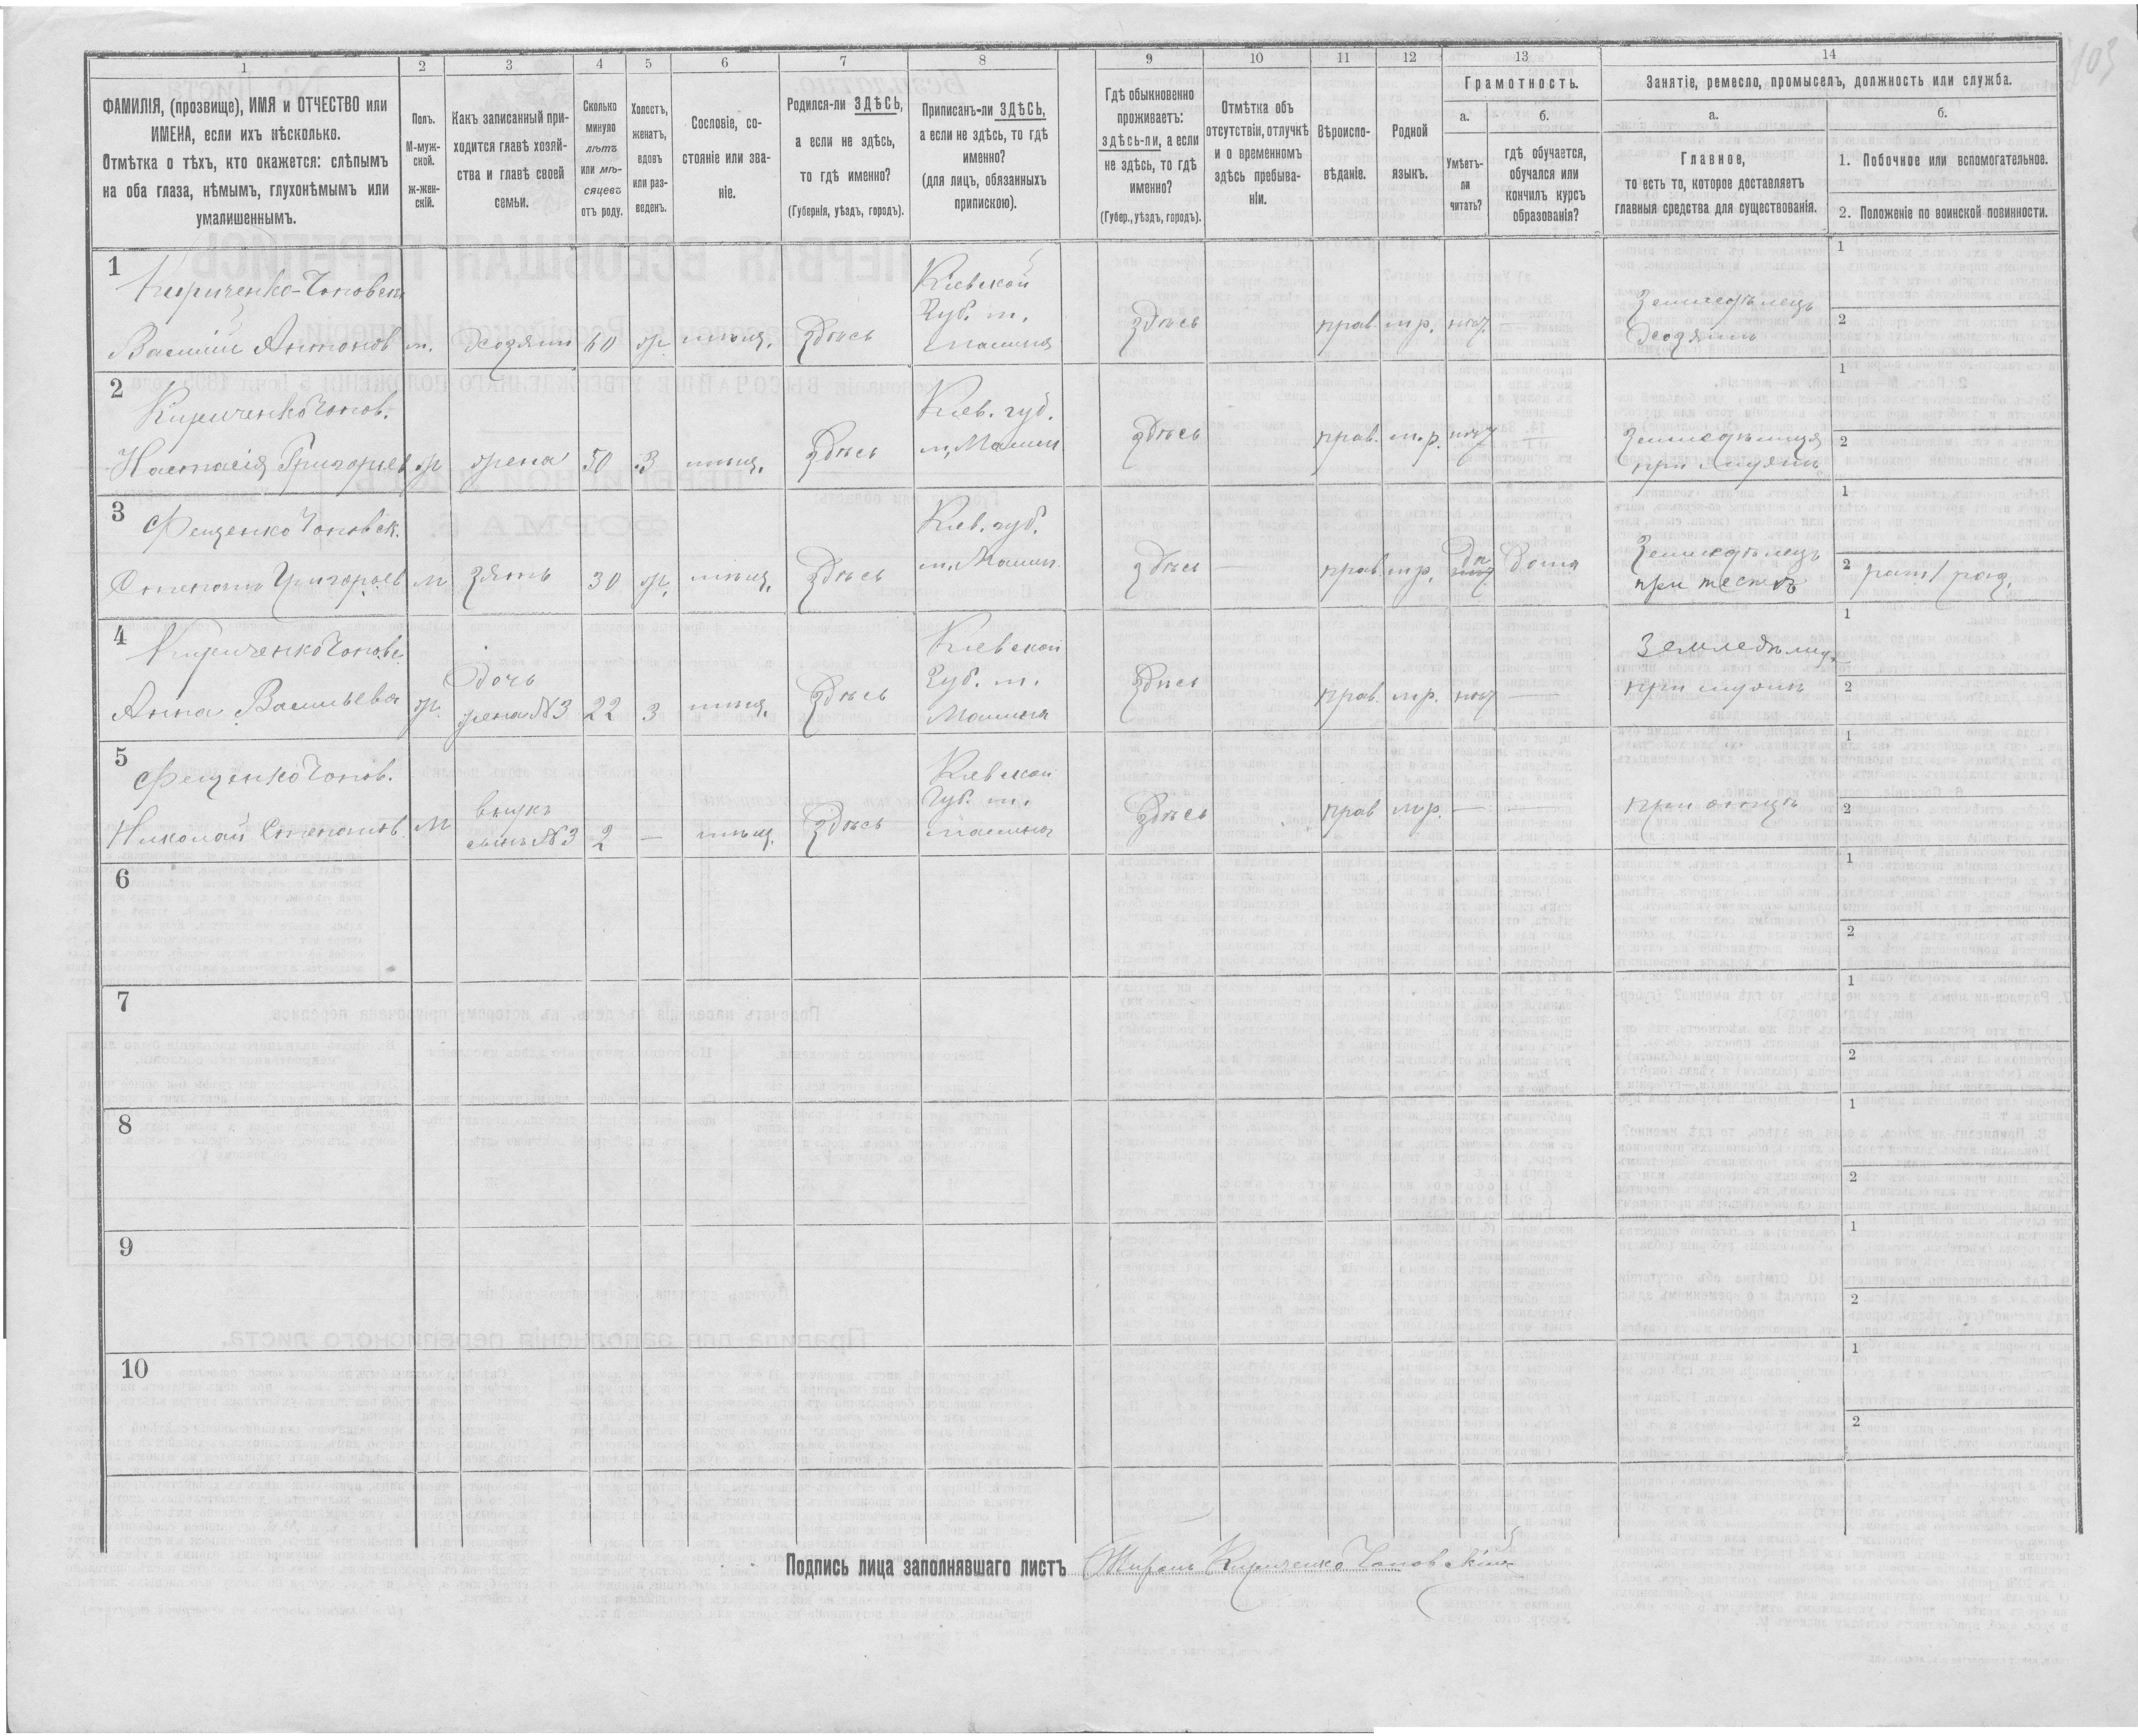 103
1
2
3
4
5
6
7
8
9
10
11
12
13
14
ФАМИЛІЯ, (прозвище), ИМЯ и ОТЧЕСТВО или
ИМЕНА, если ихъ нѣсколько.
Отмѣтка о тѣхъ, кто окажется: слѣпымъ
на оба глаза, нѣмымъ, глухонѣмымъ или
умалишеннымъ.
Полъ.
М-муж-
ской.
ж-жен-
скій.
Какъ записанный при-
ходится главѣ хозяй-
ства и главѣ своей
семьи.
Сколько
минуло
лѣтъ
или мѣ-
сяцевъ
отъ роду.
Холостъ,
женатъ,
вдовъ
или раз-
веденъ.
Сословіе, со-
стояніе или зва-
ніе.
Родился-ли ЗДѢСЬ,
а если не здѣсь,
то гдѣ именно?
(Губернія, уѣздъ, городъ).
Приписанъ-ли ЗДѢСЬ,
а если не здѣсь, то гдѣ
именно?
(для лицъ, обязанныхъ
припискою).
Гдѣ обыкновенно
проживаетъ:
здѣсь-ли, а если
не здѣсь, то гдѣ
именно?
(Губер., уѣздъ, городъ).
Отмѣтка объ
отсутствіи, отлучкѣ
и о временномъ
здѣсь пребыва-
ніи.
Вѣроиспо-
вѣданіе.
Родной
языкъ.
Грамотность.
а.
Умѣетъ-
ли
читать?
б.
гдѣ обучается,
обучался или
кончилъ курсъ
образованія?
Занятіе, ремесло, промыселъ, должность или служба.
а.
Главное,
то есть то, которое доставляетъ
главныя средства для существованія.
б.
1. Побочное или вспомогательное.
2. Положеніе по воинской повинности.
1
Кириченко-Чоповск
Василій Антоновъ
м.
Хозяинъ
60
ж.
мѣщ.
Здѣсь
Кіевской
Губ. м.
Здѣсь
прав.
м.р.
нѣт
—
Земледѣлецъ
Хозяинъ
1
2
2
Кириченко Чопов.
Настасія Григорьев
ж
жена
50
З
мѣщ.
Здѣсь
Кіев. губ.
Здѣсь
прав.
м.р.
нѣт
—
при мужѣ
1
2
3
Фещенко Чоповск.
Степанъ Григорьев
м
зять
30
ж.
мѣщ.
Здѣсь
Кіев. губ.
Здѣсь
—
прав
м.р.
Да
Дома
Земледѣлецъ
при тестѣ
1
2
4
Кириченко Чоповс.
Анна Васильева
ж.
Дочь
жена №3
22
З
мѣщ.
Здѣсь
Кіевской
Губ. м.
Здѣсь
прав.
м.р.
нѣт
—
Земледѣлиц.
при мужѣ
1
2
5
Фещенко Чопов.
Николай Степановъ.
м
внукъ
сынъ №3
2
—
мѣщ.
Здѣсь
Кіевской
Губ. м.
Здѣсь
прав
м.р.
—
—
при отцѣ
1
2
6
1
2
7
1
2
8
1
2
9
1
2
10
1
2
Подпись лица заполнявшаго листъ Миронъ Кириченко Чоповскій